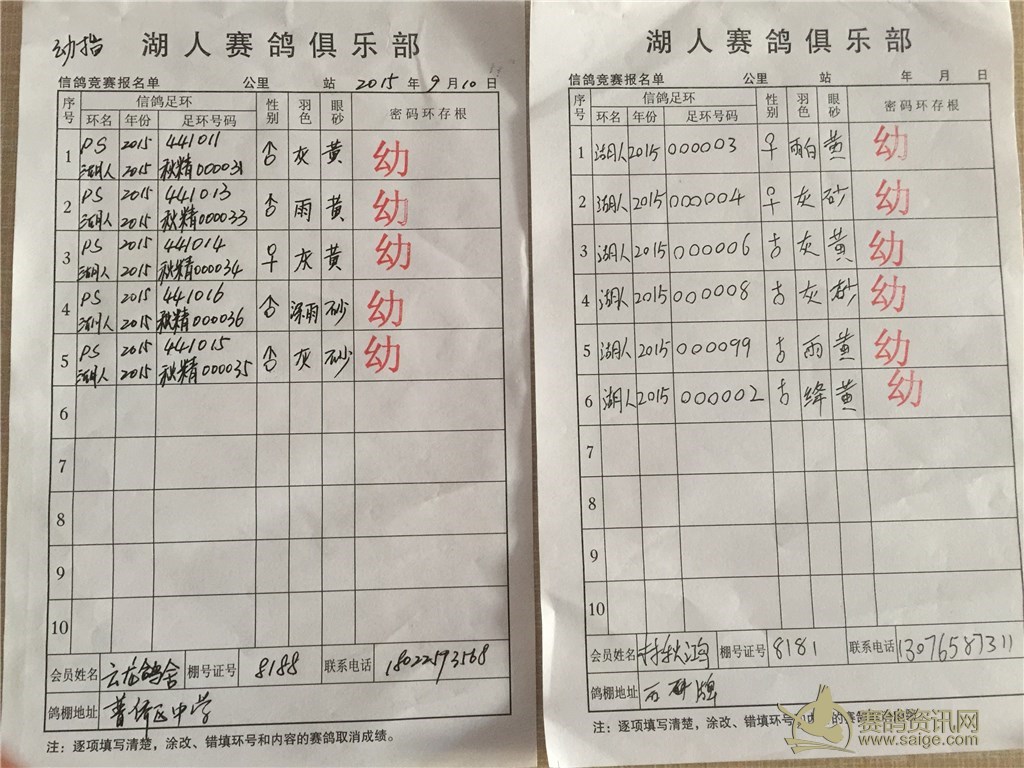 幼指
湖人赛鸽俱乐部
信鸽竞赛报名单 公里 站 2015 年 9 月 10 日
序号 信鸽足环 性别 羽色 眼砂 密码环存根
环名 年份 足环号码
1 PS 2015 441011 ♂ 灰 黄 幼
湖人 2015 秋精000031
2 PS 2015 441013 ♂ 雨 黄 幼
湖人 2015 秋精000033
3 PS 2015 441014 ♀ 灰 黄 幼
湖人 2015 秋精000034
4 PS 2015 441016 ♂ 深雨 砂 幼
湖人 2015 秋精000036
5 PS 2015 441015 ♂ 灰 砂 幼
湖人 2015 秋精000035
6
7
8
9
10
会员姓名 云龙鸽舍 棚号证号 8188 联系电话 18022573568
鸽棚地址 普侨区中学
注：逐项填写清楚，涂改、错填环号和内容的赛鸽取消成绩。
湖人赛鸽俱乐部
信鸽竞赛报名单 公里 站 年 月 日
序号 信鸽足环 性别 羽色 眼砂 密码环存根
环名 年份 足环号码
1 湖人 2015 000003 ♀ 雨白 黄 幼
2 湖人 2015 000004 ♀ 灰 砂 幼
3 湖人 2015 000006 ♂ 灰 黄 幼
4 湖人 2015 000008 ♂ 灰 砂 幼
5 湖人 2015 000099 ♂ 雨 黄 幼
6 湖人 2015 000002 ♂ 绛 黄 幼
7
8
9
10
会员姓名 棚号证号 8181 联系电话 13076587311
鸽棚地址
注：逐项填写清楚，涂改、错填环号和内容的赛鸽
赛鸽资讯网
www.saige.com